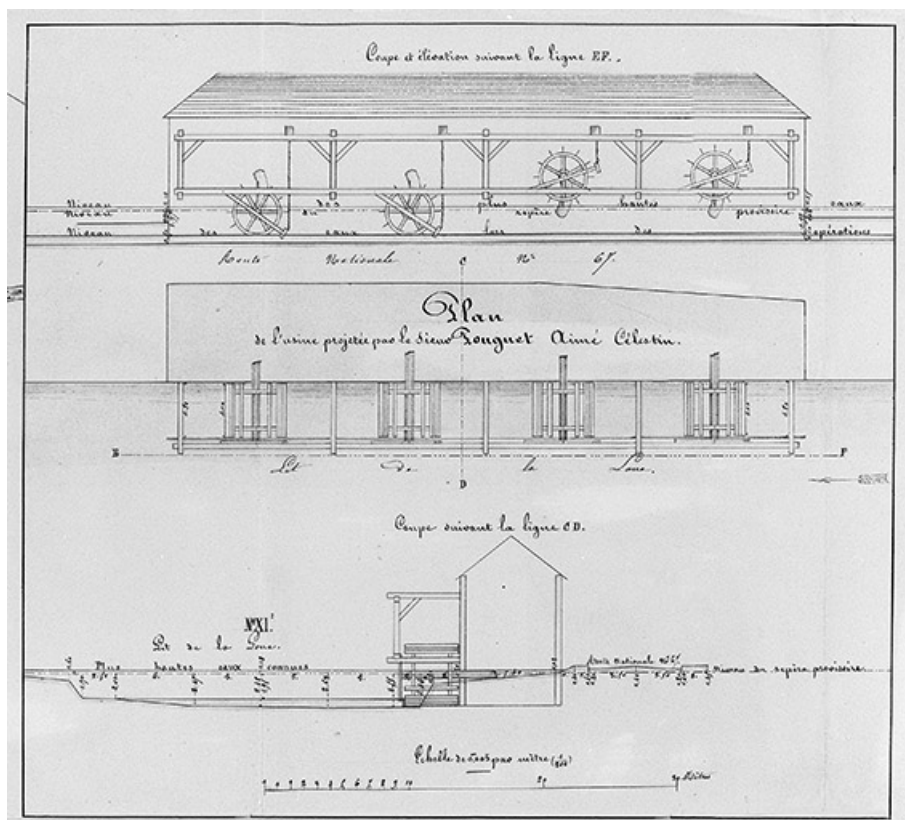 Coupe et élévation suivant la ligne E.F.
Niveau des plus hautes eaux
Niveau du repère provisoire
Niveau des eaux lors des opérations
Route Nationale N° 67.
C
Plan
de l'usine projetée par le Sieur Pouguet Aimé Célestin.
E F
Lit de la Loue.
D
Coupe suivant la ligne C.D.
N°XI.
Lit de la Loue.
Plus hautes eaux connues
Route Nationale N° 67.
Niveau du repère provisoire.
Echelle de 0,005 par mètre